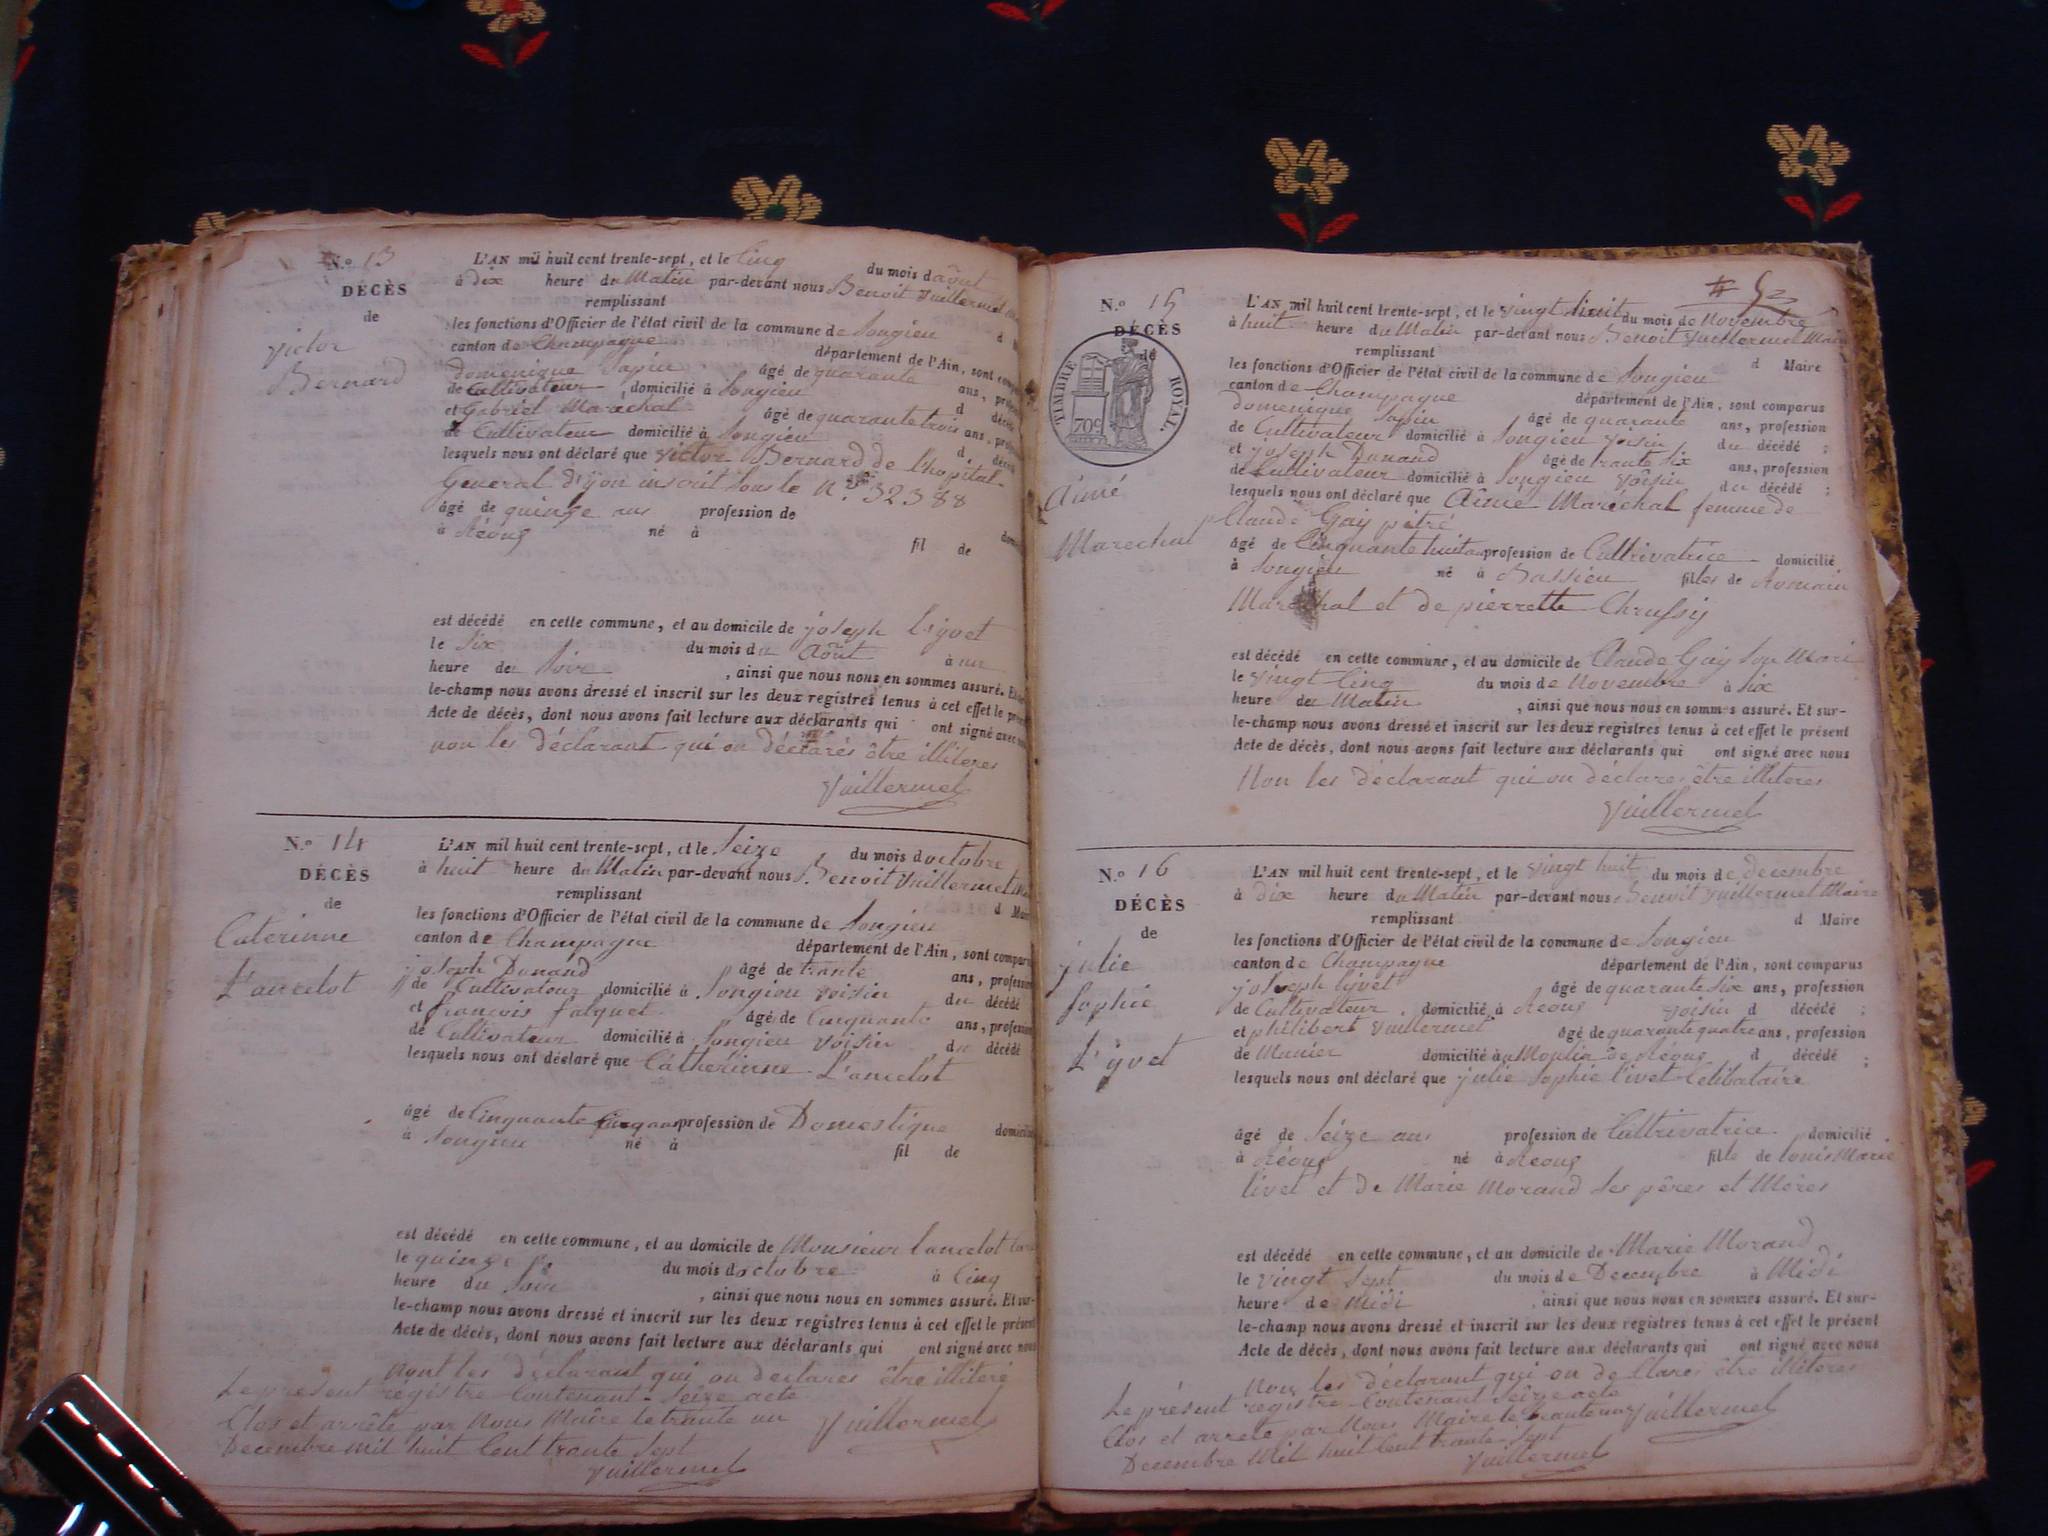 N.º 13
DÉCÈS
de
Victor
Bernard
L'AN mil huit cent trente-sept, et le Cinq du mois d août
à dix heure du Matin par-devant nous Benoit Vuillermet
remplissant
les fonctions d'Officier de l'état civil de la commune de Songieu d
canton de Champagne département de l'Ain, sont
domenique Sapin âgé de quarante ans,
de Cultivateur domicilié à Songieu d
et Gabriel Maréchal âgé de quarante trois ans,
de Cultivateur domicilié à Songieu d
lesquels nous ont déclaré que Victor Bernard de l'hopital
General dijon inscrit sous le N.º 32388
âgé de quinze ans profession de
à Réoug né à fil de
est décédé en cette commune, et au domicile de joseph Lyvet
le Six du mois du Août à un
heure de Soire , ainsi que nous nous en sommes assuré. Et
le-champ nous avons dressé et inscrit sur les deux registres tenus à cet effet le
Acte de décès, dont nous avons fait lecture aux déclarants qui ont signé avec
non les déclarant qui on déclarés être illiteres
Vuillermet
N.º 14
DÉCÈS
de
Caterinne
L'ancelot
L'AN mil huit cent trente-sept, et le Seize du mois d octobre
à huit heure du Matin par-devant nous Benoit Vuillermet
remplissant d
les fonctions d'Officier de l'état civil de la commune de Songieu
canton de Champagne département de l'Ain, sont
joseph Dunand âgé de trante ans,
de Cultivateur domicilié à Songieu voisin du décédé
et françois falquet âgé de Cinquante ans,
de Cultivateur domicilié à Songieu Voisin du décédé
lesquels nous ont déclaré que Catherinne L'ancelot
âgé de Cinquante Cinq ans profession de Domestique
à Songieu né à fil de
est décédé en cette commune, et au domicile de Monsieur Lancelot
le quinze du mois d octobre à Cinq
heure du Soir , ainsi que nous nous en sommes assuré. Et sur-
le-champ nous avons dressé et inscrit sur les deux registres tenus à cet effet le présent
Acte de décès, dont nous avons fait lecture aux déclarants qui ont signé avec nous
nont les déclarant qui on declares être illiteré
Le présent registre Contenant Seize acte
Clos et arrête par Nous Maire le trante un Vuillermet
Decembre mil huit Cent trante Sept
Vuillermet
N.º 15
DÉCÈS
de
TIMBRE ROYAL.
70c
Aimé
Marechal
L'AN mil huit cent trente-sept, et le vingt huit du mois de Novembre
à huit heure du Matin par-devant nous Benoit Vuillermet Maire
remplissant d Maire
les fonctions d'Officier de l'état civil de la commune de Songieu
canton de Champagne département de l'Ain, sont comparus
domenique Sapin âgé de quarante ans, profession
de Cultivateur domicilié à Songieu voisin du décédé ;
et joseph Dunand âgé de trante Six ans, profession
de Cultivateur domicilié à Songieu Voisin du décédé ;
lesquels nous ont déclaré que Aimé Maréchal femme de
Claude Gay pitré
âgé de Cinquante huit an profession de Cultrivatrice domicilié
à Songieu né à Bassieu filles de Romain
Maréchal et de pierrette Chrussy
est décédé en cette commune, et au domicile de Claude Gay Son Mari
le Vingt Cinq du mois de Novembre à Six
heure du Matin , ainsi que nous nous en sommes assuré. Et sur-
le-champ nous avons dressé et inscrit sur les deux registres tenus à cet effet le présent
Acte de décès, dont nous avons fait lecture aux déclarants qui ont signé avec nous
Non les déclarant qui on déclares être illiteres
Vuillermet
N.º 16
DÉCÈS
de
julie
Sophie
L'yvet
L'AN mil huit cent trente-sept, et le vingt huit du mois de decembre
à Dix heure du Matin par-devant nous Benoit Vuillermet Maire
remplissant d Maire
les fonctions d'Officier de l'état civil de la commune de Songieu
canton de Champagne département de l'Ain, sont comparus
joseph Lyvet âgé de quarante Six ans, profession
de Cultivateur domicilié à Réoug voisin d décédé ;
et philibert Vuillermet âgé de quarante quatre ans, profession
de Munier domicilié au Moulin de Réoug d décédé ;
lesquels nous ont déclaré que julie Sophie livet Celibataire
âgé de Seize ans profession de Cultrivatrice domicilié
à Réoug né à Reoug fille de louis Marie
livet et de Marie Morand Ses pères et Mères
est décédé en cette commune, et au domicile de Marie Morand
le Vingt Sept du mois de Decembre à Midi
heure de Midi , ainsi que nous nous en sommes assuré. Et sur-
le-champ nous avons dressé et inscrit sur les deux registres tenus à cet effet le présent
Acte de décès, dont nous avons fait lecture aux déclarants qui ont signé avec nous
Non les déclarant qui on declares être illiteres
Le présent registre Contenant Seize acte
Clos et arrete par Nous Maire le trante un Vuillermet
Decembre Mil huit Cent trante Sept
Vuillermet